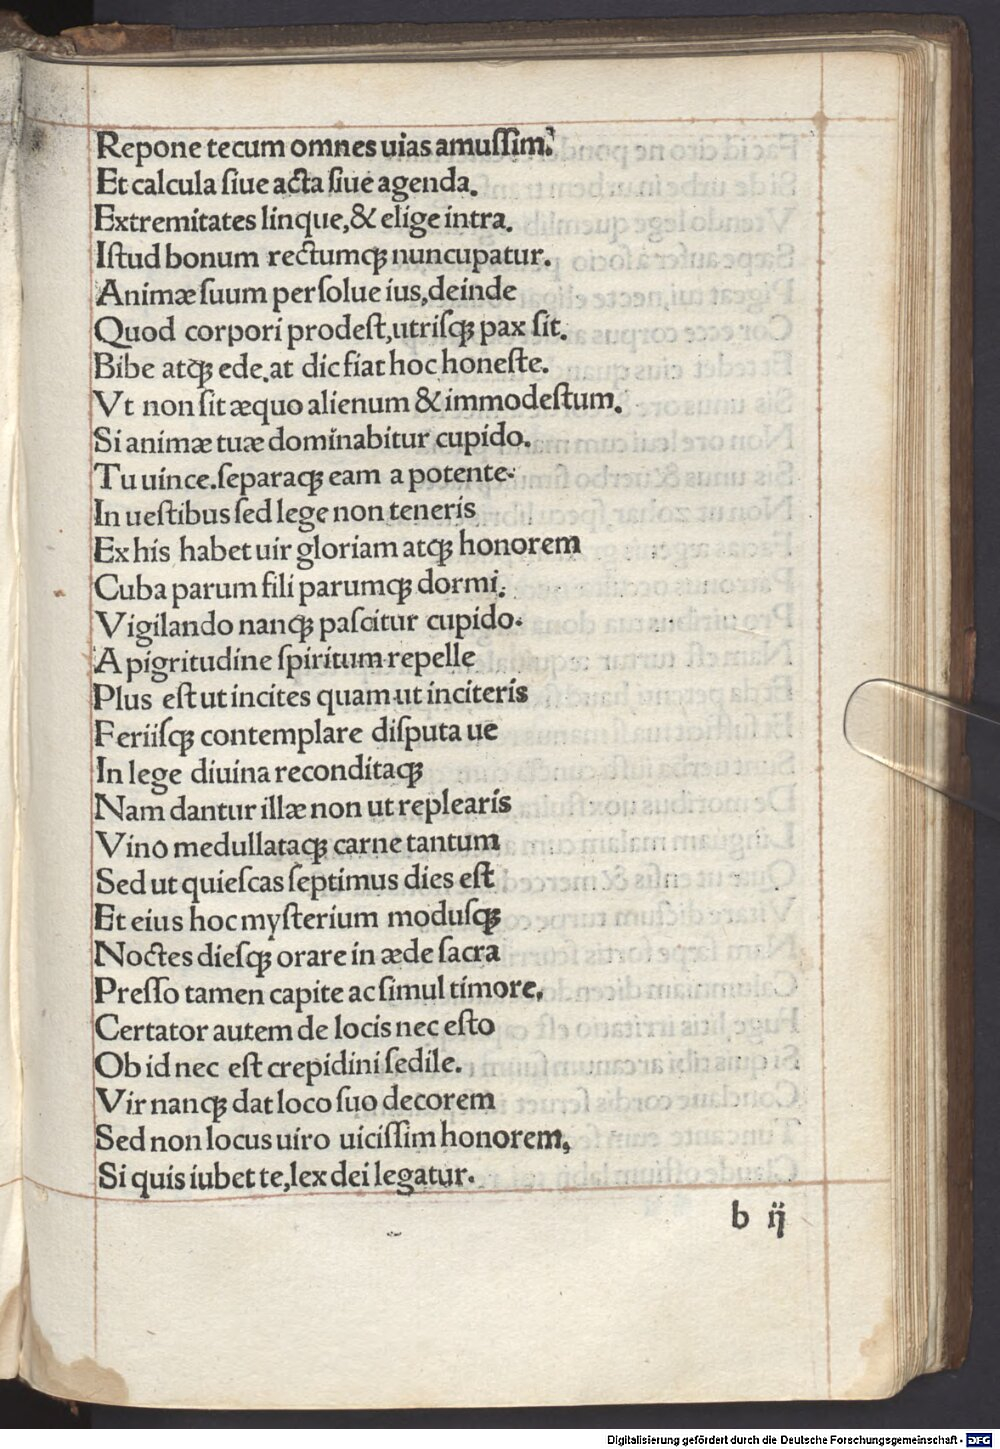 Repone tecum omnes uias amuſſim.
Et calcula ſiue acta ſiue agenda.
Extremitates linque,& elige intra.
Iſtud bonum rectumqꝫ nuncupatur.
Animæ ſuum perſolue ius,deinde
Quod corpori prodeſt,utriſqꝫ pax ſit.
Bibe atqꝫ ede.at dic fiat hoc honeſte.
Vt non ſit æquo alienum & immodeſtum.
Si animæ tuæ dominabitur cupido.
Tu uince.ſeparaqꝫ eam a potente.
In ueſtibus ſed lege non teneris
Ex his habet uir gloriam atqꝫ honorem
Cuba parum fili parumqꝫ dormi.
Vigilando nanqꝫ paſcitur cupido.
A pigritudine ſpiritum repelle
Plus eſt ut incites quam ut inciteris
Feriiſqꝫ contemplare diſputa ue
In lege diuina reconditaqꝫ
Nam dantur illæ non ut replearis
Vino medullataqꝫ carne tantum
Sed ut quieſcas ſeptimus dies eſt
Et eius hoc myſterium moduſqꝫ
Noctes dieſqꝫ orare in æde ſacra
Preſſo tamen capite ac ſimul timore,
Certator autem de locis nec eſto
Ob id nec eſt crepidini ſedile.
Vir nanqꝫ dat loco ſuo decorem
Sed non locus uiro uiciſſim honorem,
Si quis iubet te,lex dei legatur.
b ij
Digitalisierung gefördert durch die Deutsche Forschungsgemeinschaft - DFG